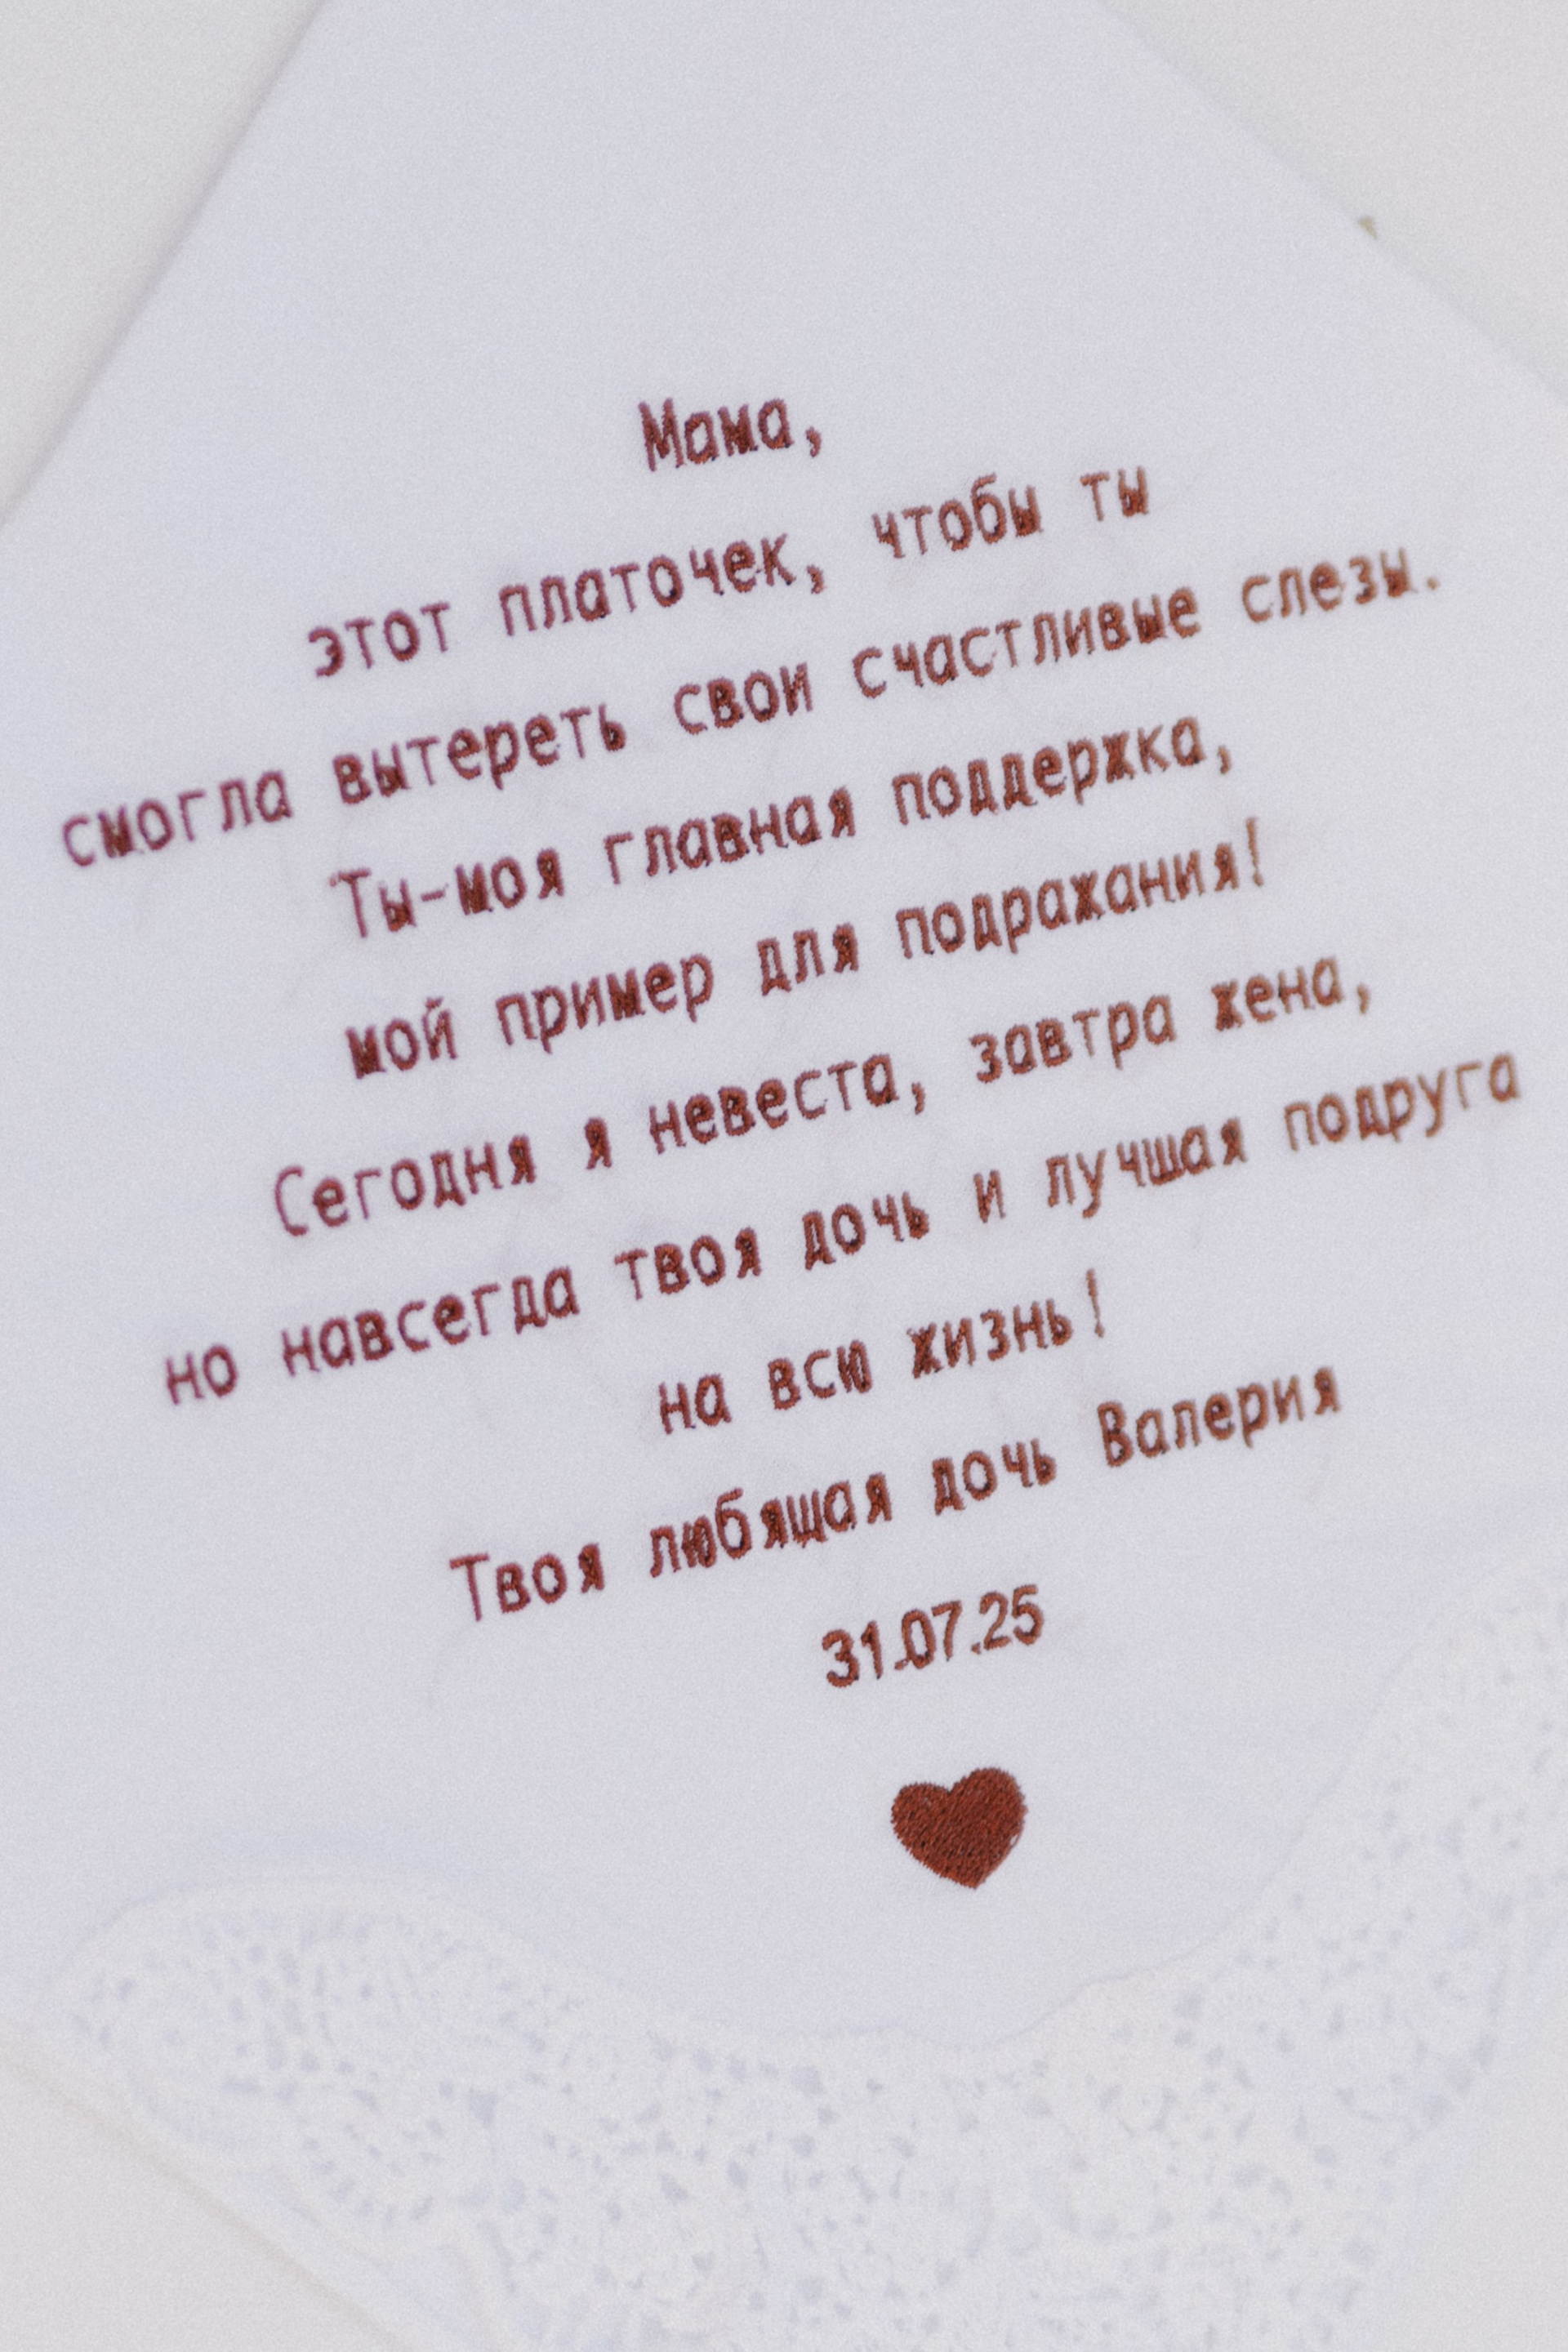 Мама,
этот платочек, чтобы ты
смогла вытереть свои счастливые слезы.
Ты-моя главная поддержка,
мой пример для подражания!
Сегодня я невеста, завтра жена,
но навсегда твоя дочь и лучшая подруга
на всю жизнь!
Твоя любящая дочь Валерия
31.07.25